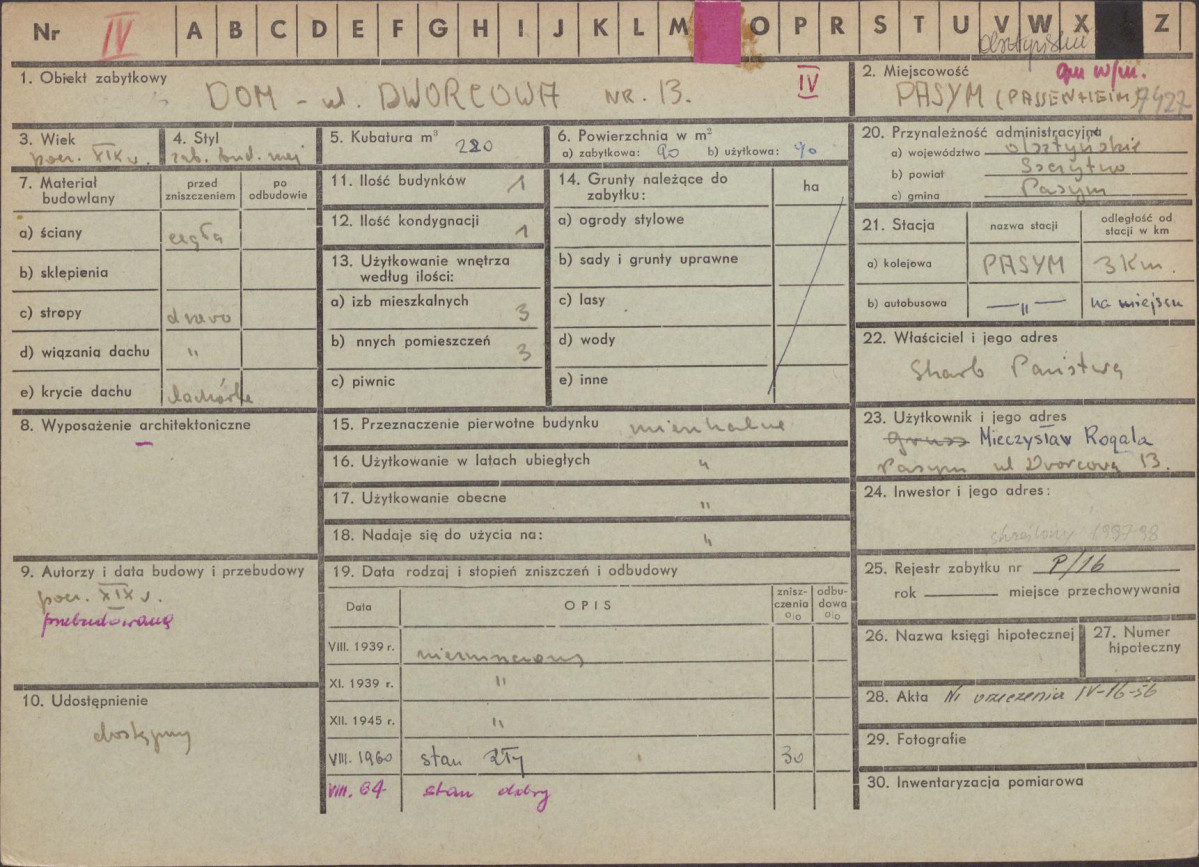 Nr IV A B C D E F G H I J K L M O P R S T U V W X Z
olsztyńskie
1. Obiekt zabytkowy
DOM - ul. DWORCOWA NR. 13.
IV
2. Miejscowość
gm w/m.
PASYM (PASSENHEIM) 7427
3. Wiek
pocz. XIX w.
4. Styl
zab. bud. miej
5. Kubatura m³ 220
6. Powierzchnia w m²
a) zabytkowa: 90 b) użytkowa: 90
7. Materiał budowlany
przed zniszczeniem
po odbudowie
a) ściany cegła
b) sklepienia
c) stropy drewo
d) wiązania dachu "
e) krycie dachu dachówka
8. Wyposażenie architektoniczne
—
9. Autorzy i data budowy i przebudowy
pocz. XIX w.
przebudowany
10. Udostępnienie
dostępny
11. Ilość budynków 1
12. Ilość kondygnacji 1
13. Użytkowanie wnętrza według ilości:
a) izb mieszkalnych 3
b) nnych pomieszczeń 3
c) piwnic
14. Grunty należące do zabytku:
ha
a) ogrody stylowe
b) sady i grunty uprawne
c) lasy
d) wody
e) inne
15. Przeznaczenie pierwotne budynku mieszkalne
16. Użytkowanie w latach ubiegłych "
17. Użytkowanie obecne "
18. Nadaje się do użycia na: "
19. Data rodzaj i stopień zniszczeń i odbudowy
Data
OPIS
zniszczenia o/o
odbudowa o/o
VIII. 1939 r. niezniszczony
XI. 1939 r. "
XII. 1945 r. "
VIII. 1960 stan zły 30
VIII. 64 stan dobry
20. Przynależność administracyjna
a) województwo olsztyńskie
b) powiat Szczytno
c) gmina Pasym
21. Stacja
nazwa stacji
odległość od stacji w km
a) kolejowa PASYM 3 Km.
b) autobusowa —"— na miejscu
22. Właściciel i jego adres
Skarb Państwa
23. Użytkownik i jego adres
Mieczysław Rogala
Pasym ul Dworcowa 13.
24. Inwestor i jego adres:
skreślony 1997-98
25. Rejestr zabytku nr P/16
rok miejsce przechowywania
26. Nazwa księgi hipotecznej
27. Numer hipoteczny
28. Akta Nr orzeczenia IV-16-56
29. Fotografie
30. Inwentaryzacja pomiarowa